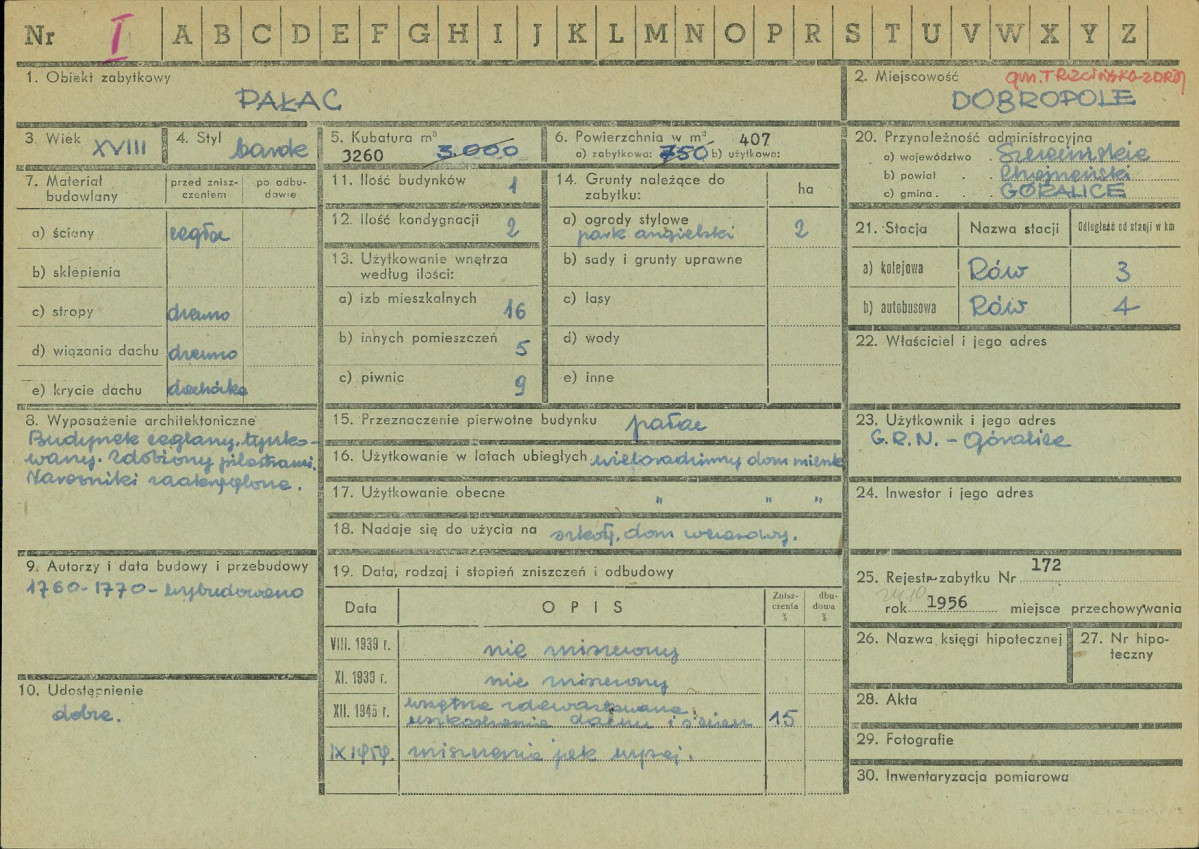 Nr I A B C D E F G H I J K L M N O P R S T U V W X Y Z
1. Obiekt zabytkowy
PAŁAC
2. Miejscowość gm. TRZCIŃSKO-ZDRÓJ
DOBROPOLE
3. Wiek XVIII
4. Styl barok
5. Kubatura m³
3260 3.000
6. Powierzchnia w m². 407
a) zabytkowa: 750 b) użytkowa:
7. Materiał budowlany
przed znisz-
czeniem
po odbu-
dowie
a) ściany cegła
b) sklepienia
c) stropy drewno
d) wiązania dachu drewno
e) krycie dachu dachówka
8. Wyposażenie architektoniczne
Budynek ceglany, tynko-
wany. Zdobiony pilastrami.
Narożniki zaokrąglone.
9. Autorzy i data budowy i przebudowy
1760-1770 - wybudowano
10. Udostępnienie
dobre.
11. Ilość budynków 1
12. Ilość kondygnacji 2
13. Użytkowanie wnętrza
według ilości:
a) izb mieszkalnych 16
b) innych pomieszczeń 5
c) piwnic 9
14. Grunty należące do
zabytku:
ha
a) ogrody stylowe
park angielski 2
b) sady i grunty uprawne
c) lasy
d) wody
e) inne
15. Przeznaczenie pierwotne budynku pałac
16. Użytkowanie w latach ubiegłych wielorodzinny dom mieszk
17. Użytkowanie obecne " " "
18. Nadaje się do użycia na szkołę, dom wczasowy.
19. Data, rodzaj i stopień zniszczeń i odbudowy
Data
OPIS
Znisz-
czenia
%
dbu-
dowa
%
VIII. 1939 r. nie niszczony
XI. 1939 r. nie niszczony
XII. 1945 r. wnętrze zdewastowane
uszkodzenia dachu i ścian 15
IX 1959. zniszczenia jak wyżej.
20. Przynależność administracyjna
a) województwo . Szczecińskie
b) powiat . . Chojeński
c) gmina . . GÓRALICE
21. Stacja
Nazwa stacji
Odległość od stacji w km
a) kolejowa Rów 3
b) autobusowa Rów 4
22. Właściciel i jego adres
23. Użytkownik i jego adres
G.R.N. - Góralice
24. Inwestor i jego adres
25. Rejestr zabytku Nr 172
rok 1956 miejsce przechowywania
26. Nazwa księgi hipotecznej
27. Nr hipo-
teczny
28. Akta
29. Fotografie
30. Inwentaryzacja pomiarowa